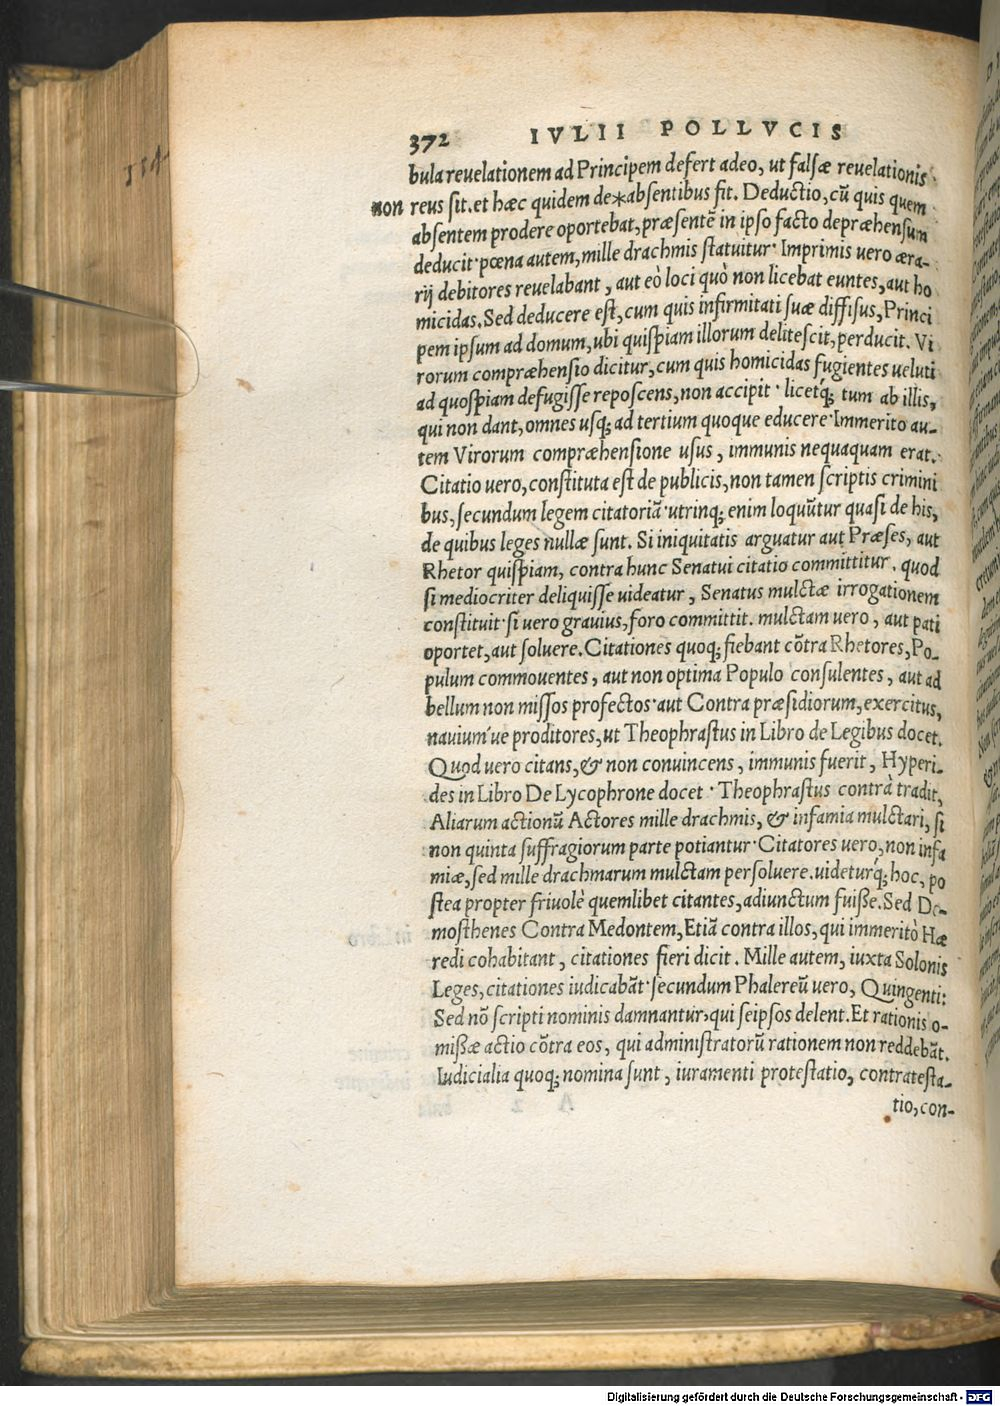 114
372 IVLII POLLVCIS
bula reuelationem ad Principem defert adeo, ut falsæ reuelationis
non reus sit. et hæc quidem de*absentibus fit. Deductio, cũ quis quem
absentem prodere oportebat, præsentẽ in ipso facto depræhensum
deducit· pœna autem, mille drachmis statuitur· Imprimis uero æra-
rij debitores reuelabant, aut eò loci quò non licebat euntes, aut ho
micidas. Sed deducere est, cum quis infirmitati suæ diffisus, Princi
pem ipsum ad domum, ubi quispiam illorum delitescit, perducit. Vi
rorum compræhensio dicitur, cum quis homicidas fugientes ueluti
ad quospiam defugisse reposcens, non accipit· licetq́; tum ab illis,
qui non dant, omnes usq; ad tertium quoque educere· Immerito au-
tem Virorum compræhensione usus, immunis nequaquam erat.
Citatio uero, constituta est de publicis, non tamen scriptis crimini
bus, secundum legem citatoriã· utrinq; enim loquũtur quasi de his,
de quibus leges nullæ sunt. Si iniquitatis arguatur aut Præses, aut
Rhetor quispiam, contra hunc Senatui citatio committitur. quod
si mediocriter deliquisse uideatur, Senatus mulctæ irrogationem
constituit· si uero grauius, foro committit. mulctam uero, aut pati
oportet, aut soluere. Citationes quoq; fiebant cõtra Rhetores, Po-
pulum commouentes, aut non optima Populo consulentes, aut ad
bellum non missos profectos· aut Contra præsidiorum, exercitus,
nauiuḿue proditores, ut Theophrastus in Libro de Legibus docet.
Quod uero citans, & non conuincens, immunis fuerit, Hyperi-
des in Libro De Lycophrone docet· Theophrastus contrà tradit,
Aliarum actionũ Actores mille drachmis, & infamia mulctari, si
non quinta suffragiorum parte potiantur· Citatores uero, non infa
miæ, sed mille drachmarum mulctam persoluere. uideturq́; hoc, po
stea propter friuolè quemlibet citantes, adiunctum fuiße. Sed De-
mosthenes Contra Medontem, Etiã contra illos, qui immeritò Hæ
redi cohabitant, citationes fieri dicit. Mille autem, iuxta Solonis
Leges, citationes iudicabãt· secundum Phalereũ uero, Quingenti:
Sed nõ scripti nominis damnantur, qui seipsos delent. Et rationis o-
mißæ actio cõtra eos, qui administratorũ rationem non reddebãt.
Iudicialia quoq; nomina sunt, iuramenti protestatio, contratesta-
tio, con-
Digitalisierung gefördert durch die Deutsche Forschungsgemeinschaft - DFG